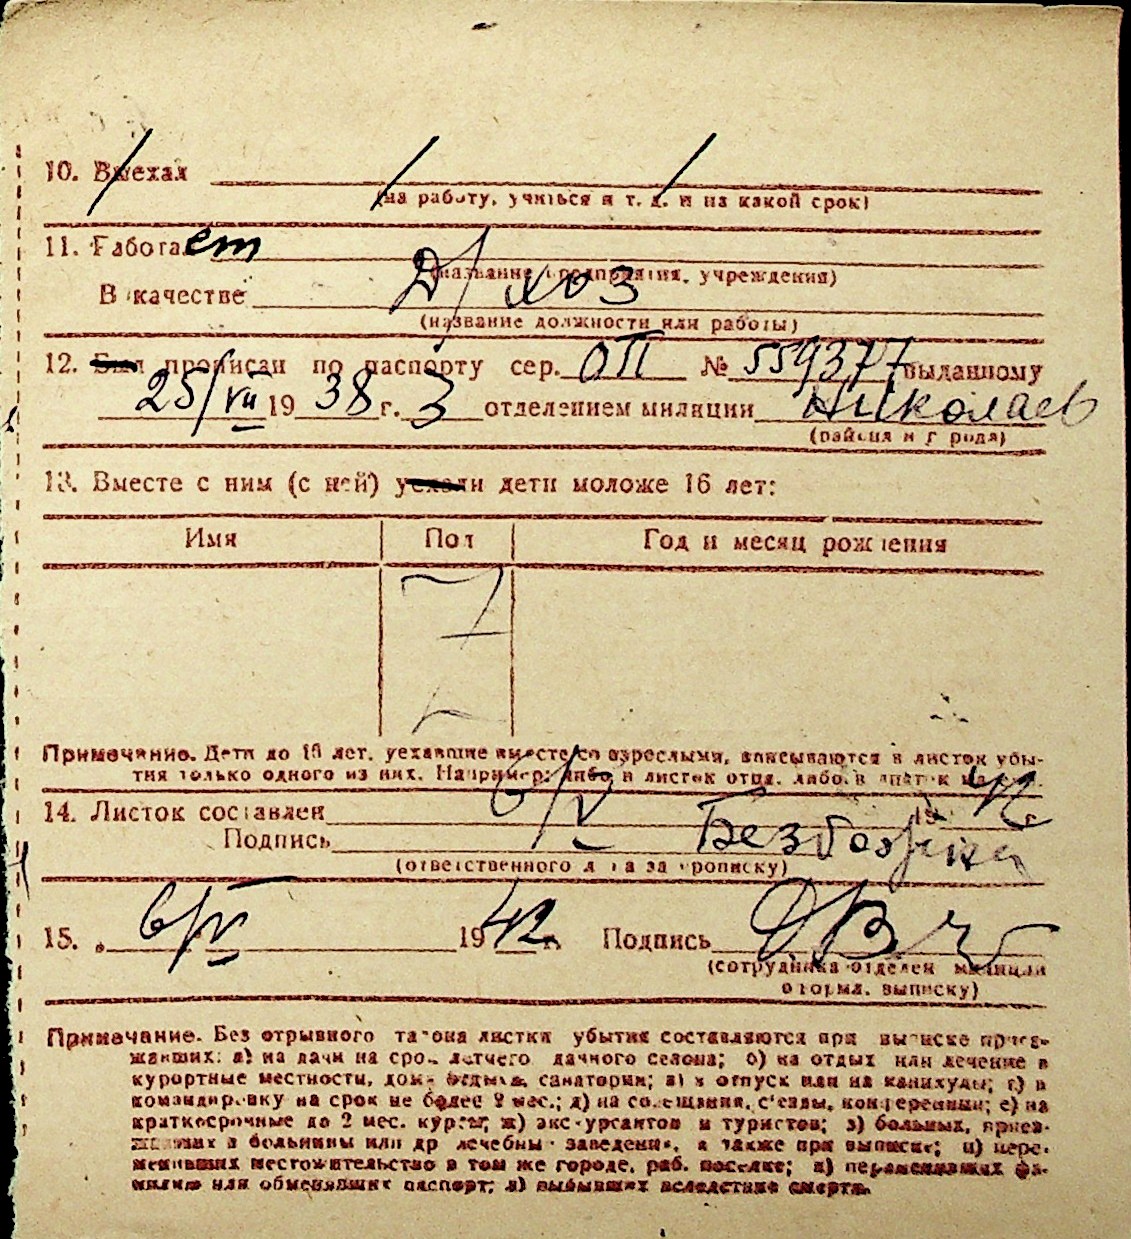 10. Выехал
(на работу, учиться и т. д. и на какой срок)
11. Работает
(название предприятия, учреждения)
Д/хоз
В качестве
(название должности или работы)
12. Был прописан по паспорту сер. ОП № 559377 выданному
25/VII 19 38 г. 3 отделением милиции Николаев
(района и города)
13. Вместе с ним (с ней) уехали дети моложе 16 лет:
Имя Пол Год и месяц рождения
Примечание. Дети до 16 лет, уехавшие вместе со взрослыми, вписываются в листок убы-
тия только одного из них. Например: либо в листок отца, либо в листок
14. Листок составлен 6/V 19 42
Подпись
(ответственного лица за прописку)
15. „ 6/V 19 42 г. Подпись
(сотрудника отделен. милиции
оформл. выписку)
Примечание. Без отрывного талона листки убытия составляются при выписке приез-
жавших: а) на дачи на срок летнего дачного сезона; б) на отдых или лечение в
курортные местности, дома отдыха, санатории; в) в отпуск или на каникулы; г) в
командировку на срок не более 2 мес.; д) на совещания, съезды, конференции; е) на
краткосрочные до 2 мес. курсы; ж) экскурсантов и туристов; з) больных, приез-
жавших в больницы или др лечебны заведения, а также при выписке; и) пере-
менивших местожительство в том же городе, раб. поселке; к) переменивших фа-
милию или обменявших паспорт; л) выбывших вследствие смерти.